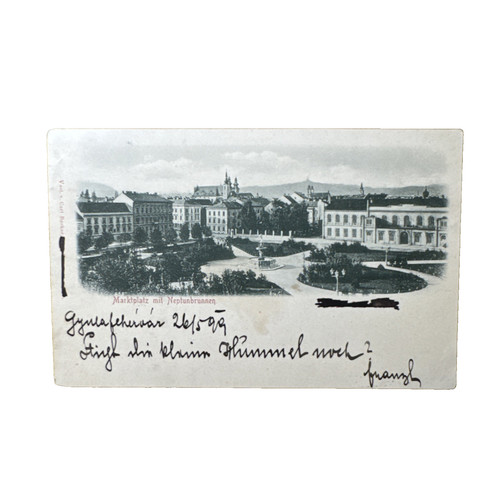 Marktplatz mit Neptunbrunnen
Gyulafehérvár 26/5 99
Fliegt die kleine Hummel noch?
Franzl